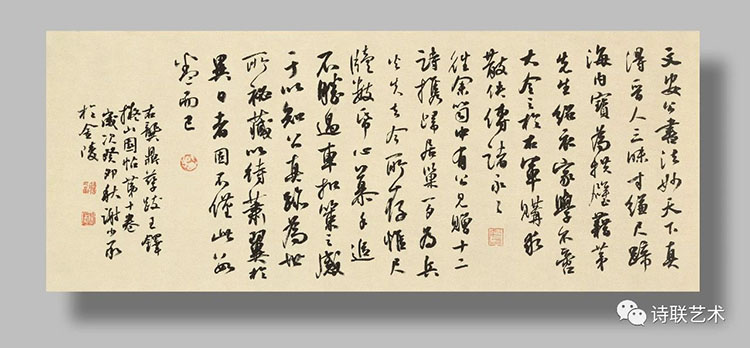 文安公書法妙天下真
得晋人三昧寸縑尺蹄
海内寶為拱璧藉茅
先生紹衣家學不啻
大令之於右軍購求
散佚傳諸永〻
往余笥中有公見贈十二
詩携歸居巢為兵
火失去今所存惟尺
牘数帋心慕手追
不勝過車扣策之感
于以知公真跡為世
所祕藏以待蕭翼於
異日者固不僅此
而已
右龔鼎孳跋王鐸
擬山園帖第十卷
歲次癸卯秋謝少承
於金陵
诗联艺术